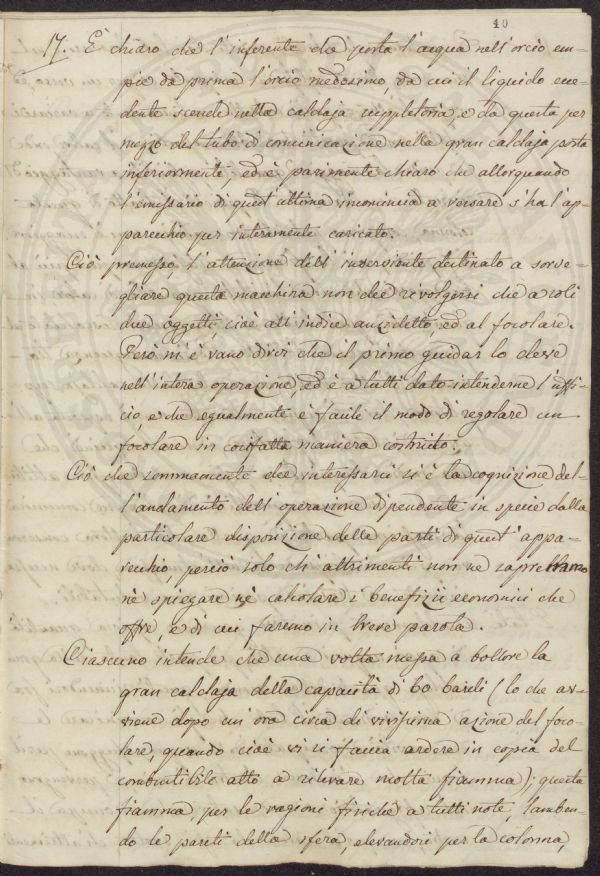 10
17. È chiaro che l'inferente che porta l'acqua nell'orcio em-
pie da prima l'orcio medesimo, da cui il liquido ecce-
dente scende nella caldaja suppletoria, e da questa per
mezzo del tubo di comunicazione nella gran caldaja posta
inferiormente; ed è parimente chiaro che allorquando
l'emissario di quest'ultima incomincia a versare s'ha l'ap-
parecchio per interamente caricato.
Ciò premesso l'attenzione dell'inserviente destinato a sorve-
gliare questa macchina non dee rivolgersi che a soli
due oggetti, cioè all'indice anzidetto, ed al focolare.
Però ni è vano dirvi che il primo guidar lo deve
nell'intera operazione, ed è a tutti dato intenderne l'uffi-
cio, e che egualmente è facile il modo di regolare un
focolare in cosifatta maniera costruito.
Ciò che sommamente dee interessarci si è la cognizione del-
l'andamento dell'operazione dipendente in specie dalla
particolare disposizione delle parti di quest'appa-
recchio, perciò solo ch'altrimenti non ne sapressamo
nè spiegare nè calcolare i beneficii economici che
offre, e di cui faremo in breve parola.
Ciascuno intende che una volta messa a bollore la
gran caldaja della capacità di 60 barili (lo che av-
viene dopo un'ora circa di vivissima azione del foco-
lare, quando cioè vi si faccia ardere in copia del
combustibile atto a rilevare molta fiamma); questa
fiamma, per le ragioni fisiche a tutti note, lamben-
do le pareti della sfera, elevandosi per la colonna,